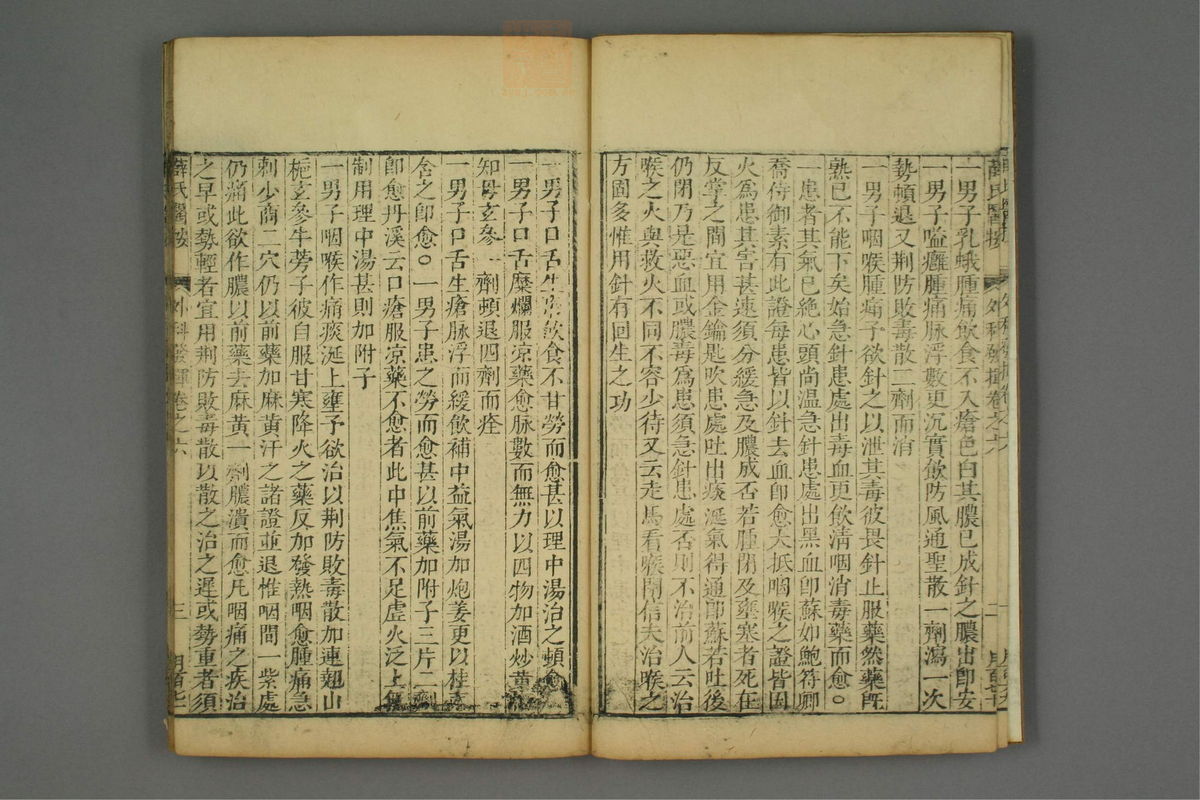 薛氏醫按 外科發揮卷之六 二
一男子乳蛾腫痛飲食不入瘡色白其膿已成針之膿出即安
一男子嗌癰腫痛脉浮數更沉實飲防風通聖散一劑瀉一次
勢頓退又荆防敗毒散二劑而消
一男子咽喉腫痛予欲針之以泄其毒彼畏針止服藥然藥既
熟已不能下矣始急針患處出毒血更飲清咽消毒藥而愈○
一患者其氣已絶心頭尚温急針患處出黑血即蘇如鮑符卿
喬侍御素有此證每患皆以針去血即愈大抵咽喉之證皆因
火爲患其害甚速須分緩急及膿成否若腫閉及壅塞者死在
反掌之間宜用金鑰匙吹患處吐出痰涎氣得通即蘇若吐後
仍閉乃是惡血或膿毒爲患須急針患處否則不治前人云治
喉之火與救火不同不容少待又云走馬看喉閉信夫治喉之
方固多惟用針有回生之功
一男子口舌生瘡飲食不甘勞而愈甚以理中湯治之頓愈
一男子口舌糜爛服凉藥愈脉數而無力以四物加酒炒黄
知母玄參一劑頓退四劑而痊
一男子口舌生瘡脉浮而緩飲補中益氣湯加炮姜更以桂
含之即愈○一男子患之勞而愈甚以前藥加附子三片二劑
即愈丹溪云口瘡服凉藥不愈者此中焦氣不足虛火泛上無
制用理中湯甚則加附子
一男子咽喉作痛痰涎上壅予欲治以荆防敗毒散加連翹山
梔玄參牛蒡子彼自服甘寒降火之藥反加發熱咽愈腫痛急
刺少商二穴仍以前藥加麻黄汗之諸證並退惟咽間一紫處
仍痛此欲作膿以前藥去麻黄一劑膿潰而愈凡咽痛之疾治
之早或勢輕者宜用荆防敗毒散以散之治之遲或勢重者須
薛氏醫按 外科發揮卷之六 三